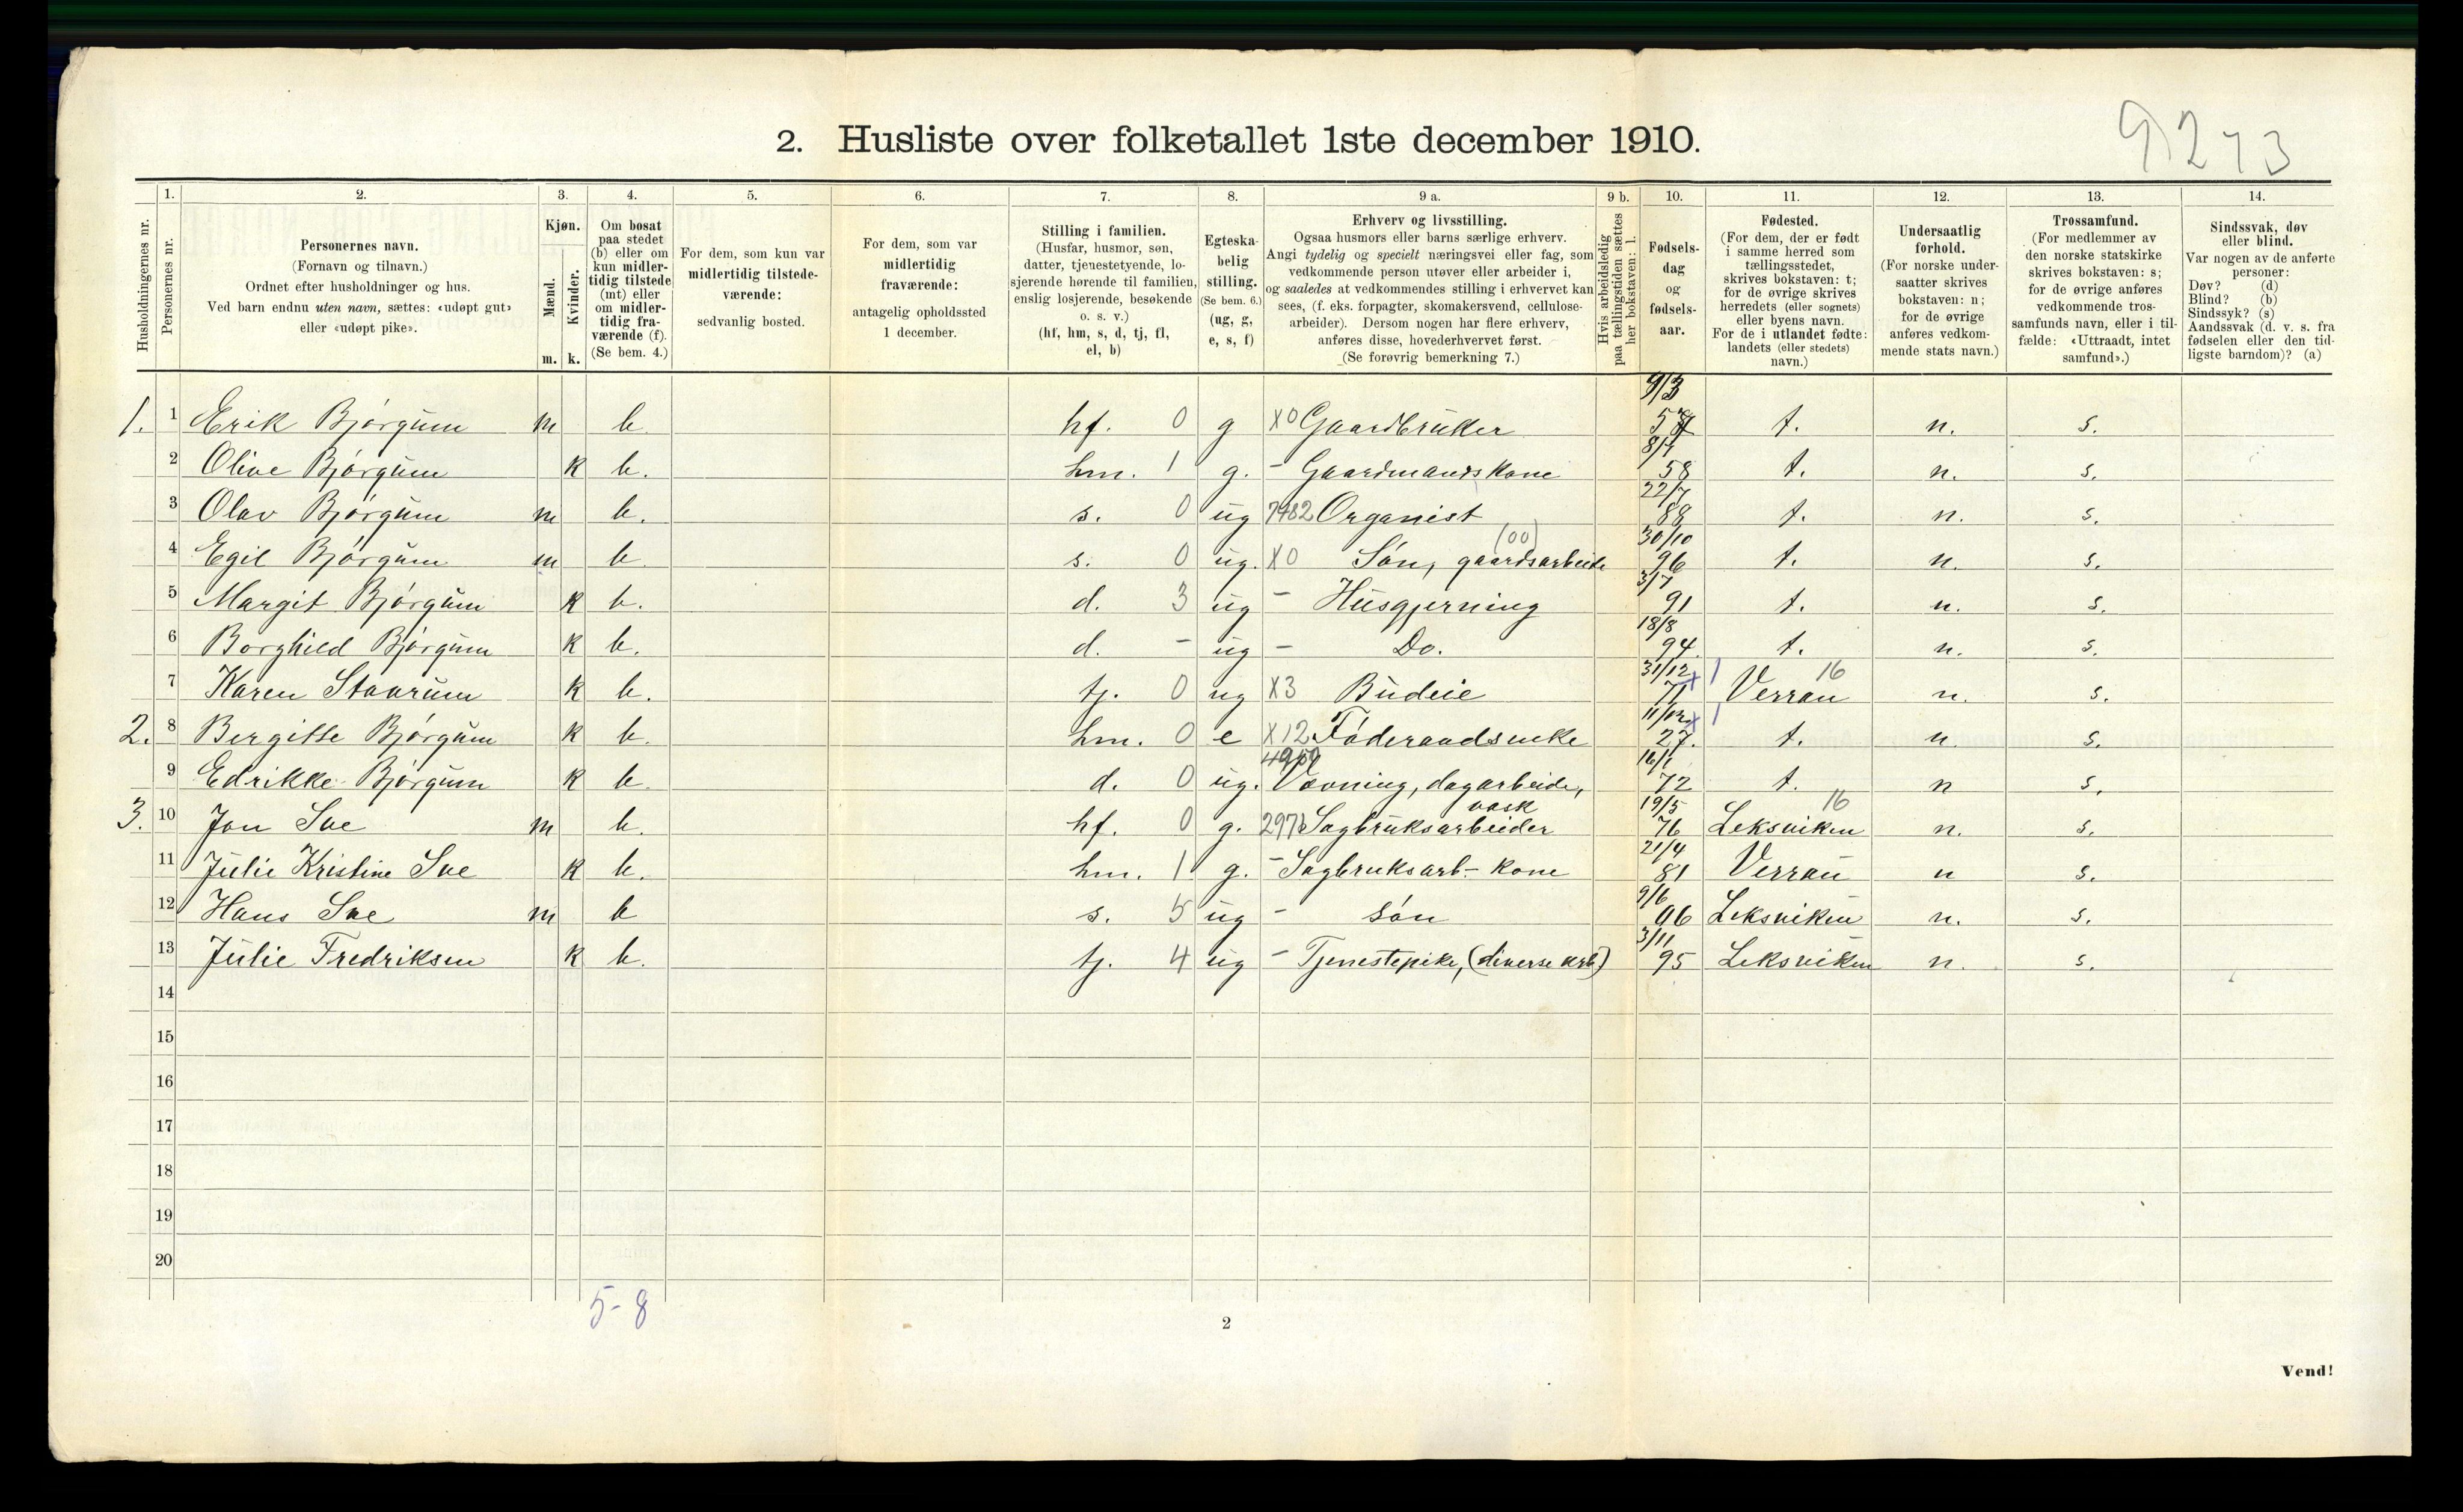 9273
2. Husliste over folketallet 1ste december 1910.
Husholdningernes nr.
1. Personernes nr.
2. Personernes navn.
(Fornavn og tilnavn.)
Ordnet efter husholdninger og hus.
Ved barn endnu uten navn, sættes: «udøpt gut»
eller «udøpt pike».
3. Kjøn.
Mænd. m.
Kvinder. k.
4. Om bosat
paa stedet
(b) eller om
kun midler-
tidig tilstede
(mt) eller
om midler-
tidig fra-
værende (f).
(Se bem. 4.)
5. For dem, som kun var
midlertidig tilstede-
værende:
sedvanlig bosted.
6. For dem, som var
midlertidig
fraværende:
antagelig opholdssted
1 december.
7. Stilling i familien.
(Husfar, husmor, søn,
datter, tjenestetyende, lo-
sjerende hørende til familien,
enslig losjerende, besøkende
o. s. v.)
(hf, hm, s, d, tj, fl,
el, b)
8. Egteska-
belig
stilling.
(Se bem. 6.)
(ug, g,
e, s, f)
9 a. Erhverv og livsstilling.
Ogsaa husmors eller barns særlige erhverv.
Angi tydelig og specielt næringsvei eller fag, som
vedkommende person utøver eller arbeider i,
og saaledes at vedkommendes stilling i erhvervet kan
sees, (f. eks. forpagter, skomakersvend, cellulose-
arbeider). Dersom nogen har flere erhverv,
anføres disse, hovederhvervet først.
(Se forøvrig bemerkning 7.)
9 b. Hvis arbeidsledig
paa tællingstiden sættes
her bokstaven: l.
10. Fødsels-
dag
og
fødsels-
aar.
11. Fødested.
(For dem, der er født
i samme herred som
tællingsstedet,
skrives bokstaven: t;
for de øvrige skrives
herredets (eller sognets)
eller byens navn.
For de i utlandet fødte:
landets (eller stedets)
navn.)
12. Undersaatlig
forhold.
(For norske under-
saatter skrives
bokstaven: n;
for de øvrige
anføres vedkom-
mende stats navn.)
13. Trossamfund.
(For medlemmer av
den norske statskirke
skrives bokstaven: s;
for de øvrige anføres
vedkommende tros-
samfunds navn, eller i til-
fælde: «Uttraadt, intet
samfund».)
14. Sindssvak, døv
eller blind.
Var nogen av de anførte
personer:
Døv? (d)
Blind? (b)
Sindssyk? (s)
Aandssvak (d. v. s. fra
fødselen eller den tid-
ligste barndom)? (a)
1. 1 Erik Bjørgum m b hf. 0 g X0 Gaardbruker 9/3 t. n. s.
2 Olive Bjørgum k b. hm. 1 g. - Gaardmandskone 58 t. n. s.
3 Olav Bjørgum m b. s. 0 ug 7482 Organist 22/7 88 t. n. s.
4 Egil Bjørgum m b. s. 0 ug. X0 Søn, gaardsarbeide (00) 30/10 96 t. n. s.
5 Margit Bjørgum k b. d. 3 ug - Husgjerning 3/7 91 t. n. s.
6 Borghild Bjørgum k b. d. - ug - Do. 18/8 94. t. n. s.
7 Karen Staurum k b. tj. 0 ug X3 Budeie 31/12 71 Verran 16 n. s.
2. 8 Bergitte Bjørgum k b. hm. 0 e X12 Føderaadsenke 11/12 27. t. n. s.
9 Edrikke Bjørgum k b. d. 0 ug. Vævning, dagarbeide, vask 16/1 72 t. n s.
3. 10 Jon Sve m b. hf. 0 g. Sagbruksarbeider 19/5 76 Leksviken 16 n. s.
11 Julie Kristine Sve k b. hm. 1 g. - Sagbruksarb- kone 21/4 81 Verran n s.
12 Hans Sve m b s. 5 ug - søn 9/6 06 Leksviken n. s.
13 Julie Fredriksen k b. tj. 4 ug - Tjenestepike, (diverse arb) 3/11 95 Leksviken n. s.
14
15
16
17
18
19
20
5-8
2
Vend!